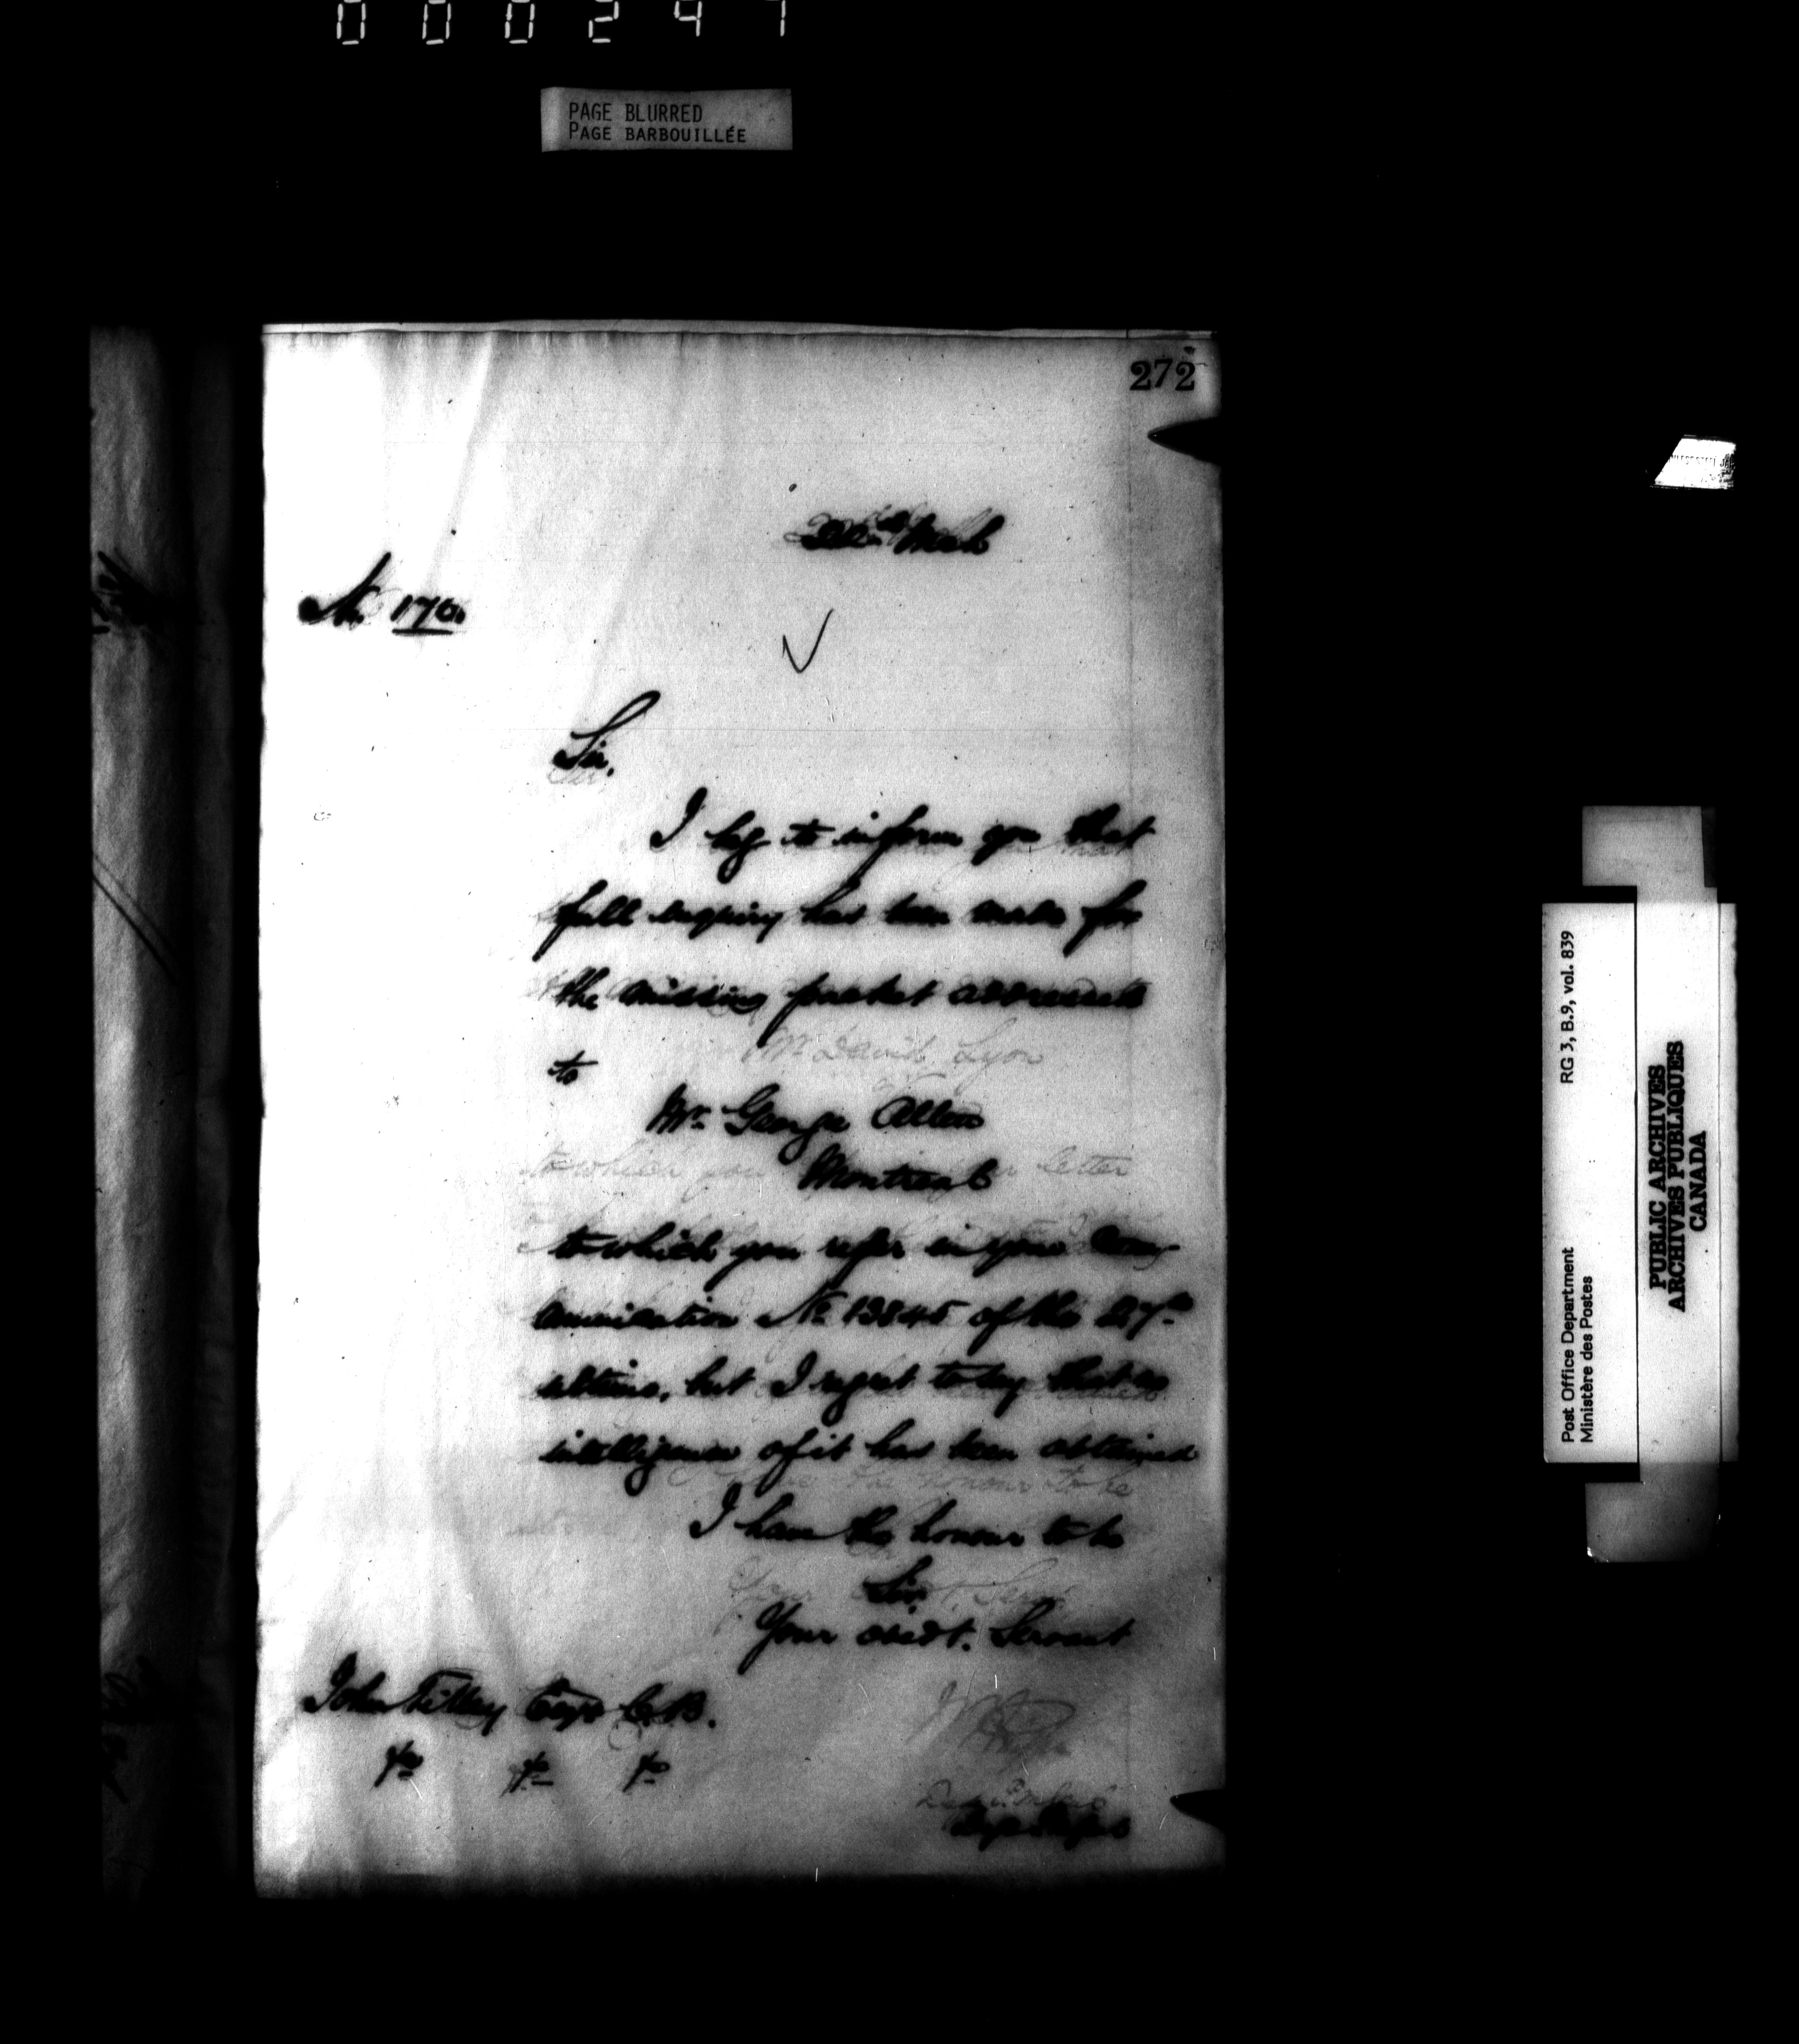 000247
PAGE BLURRED
PAGE BARBOUILLÉE
272
22nd March
No. 170.
Sir.
I beg to inform you that
full enquiry has been made for
the missing packet addressed
Mr. David Lyon
to
Mr. George Allen
to which you letter
Montreal
to which you refer in your Com-
munication No. 13845 of the 27th
ultimo, but I regret to say that no
intelligence of it has been obtained
the honour to be
I have the honour to be
Sir.
Your obedt. Servant
John Tilley Esqr. C.B.
&c &c &c
RG 3, B.9, vol. 839
Post Office Department
Ministère des Postes
PUBLIC ARCHIVES
ARCHIVES PUBLIQUES
CANADA